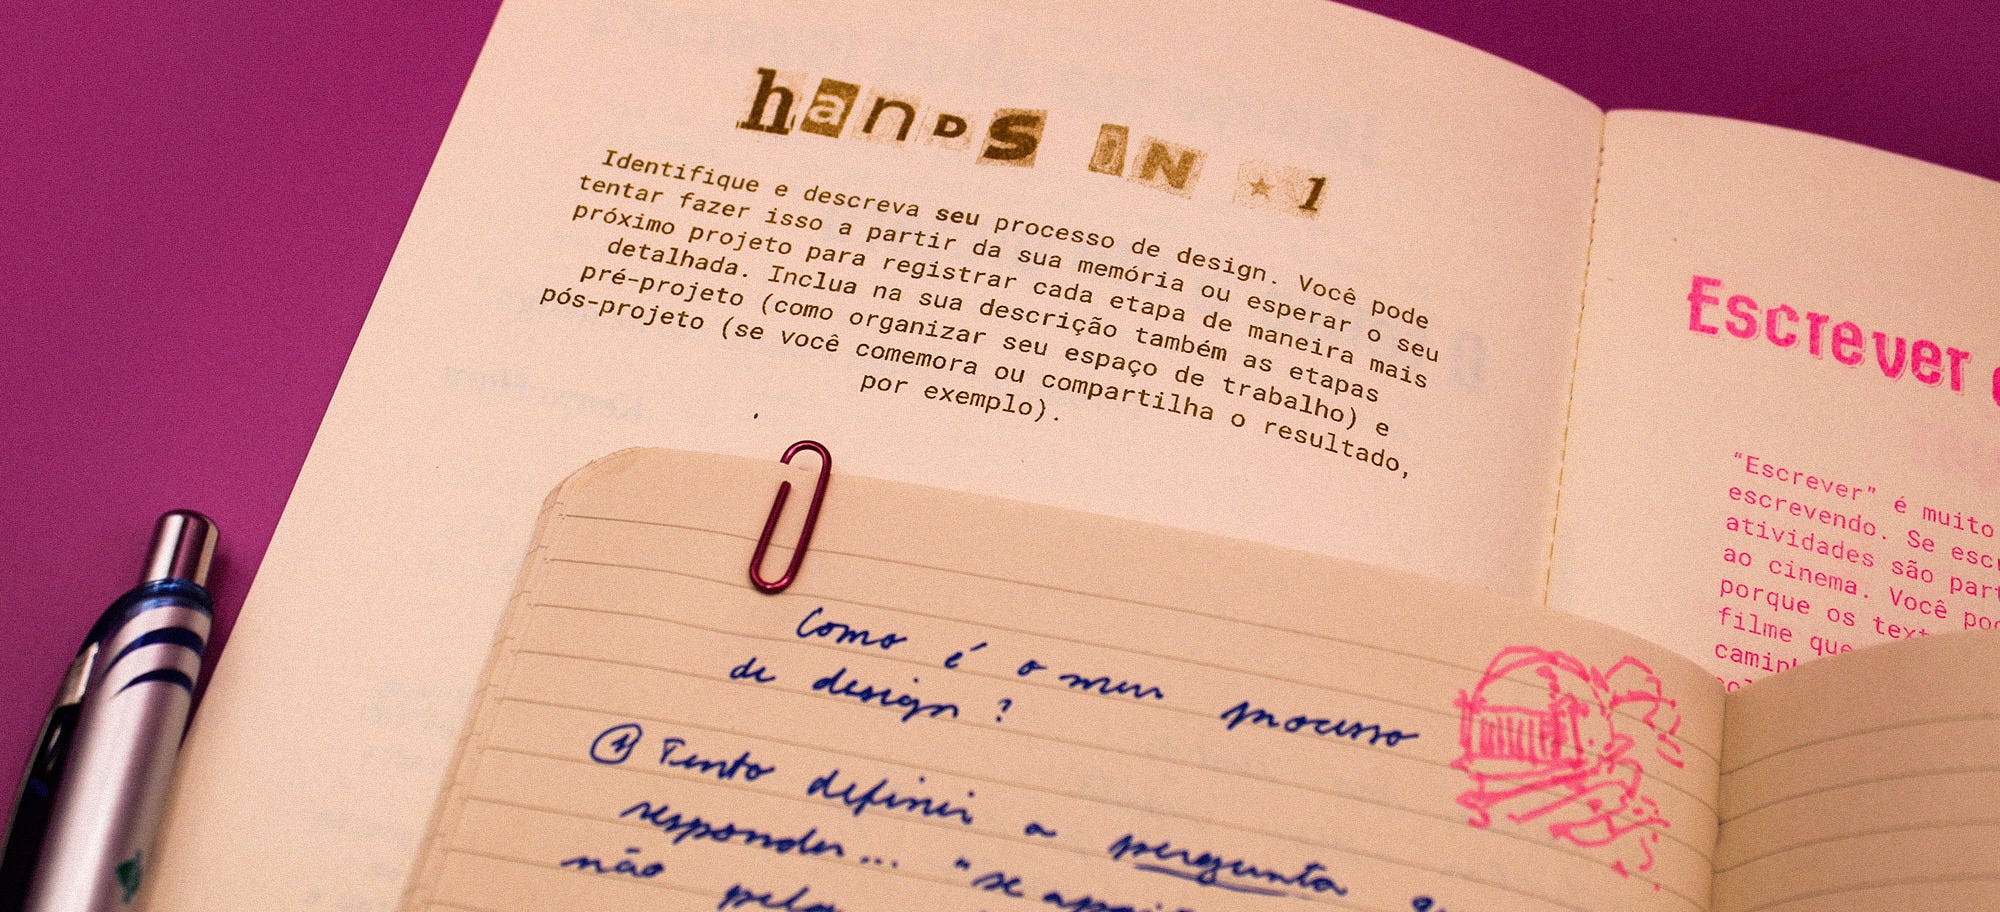 hands in ★ 1
Identifique e descreva seu processo de design. Você pode
tentar fazer isso a partir da sua memória ou esperar o seu
próximo projeto para registrar cada etapa de maneira mais
detalhada. Inclua na sua descrição também as etapas
pré-projeto (como organizar seu espaço de trabalho) e
pós-projeto (se você comemora ou compartilha o resultado,
por exemplo).
Como é o meu processo
de design?
1 Tento definir a pergunta
responder... "se
não pela
Escrever
"Escrever" é muito
escrevendo. Se
atividades são
ao cinema. Você
porque os
filme que